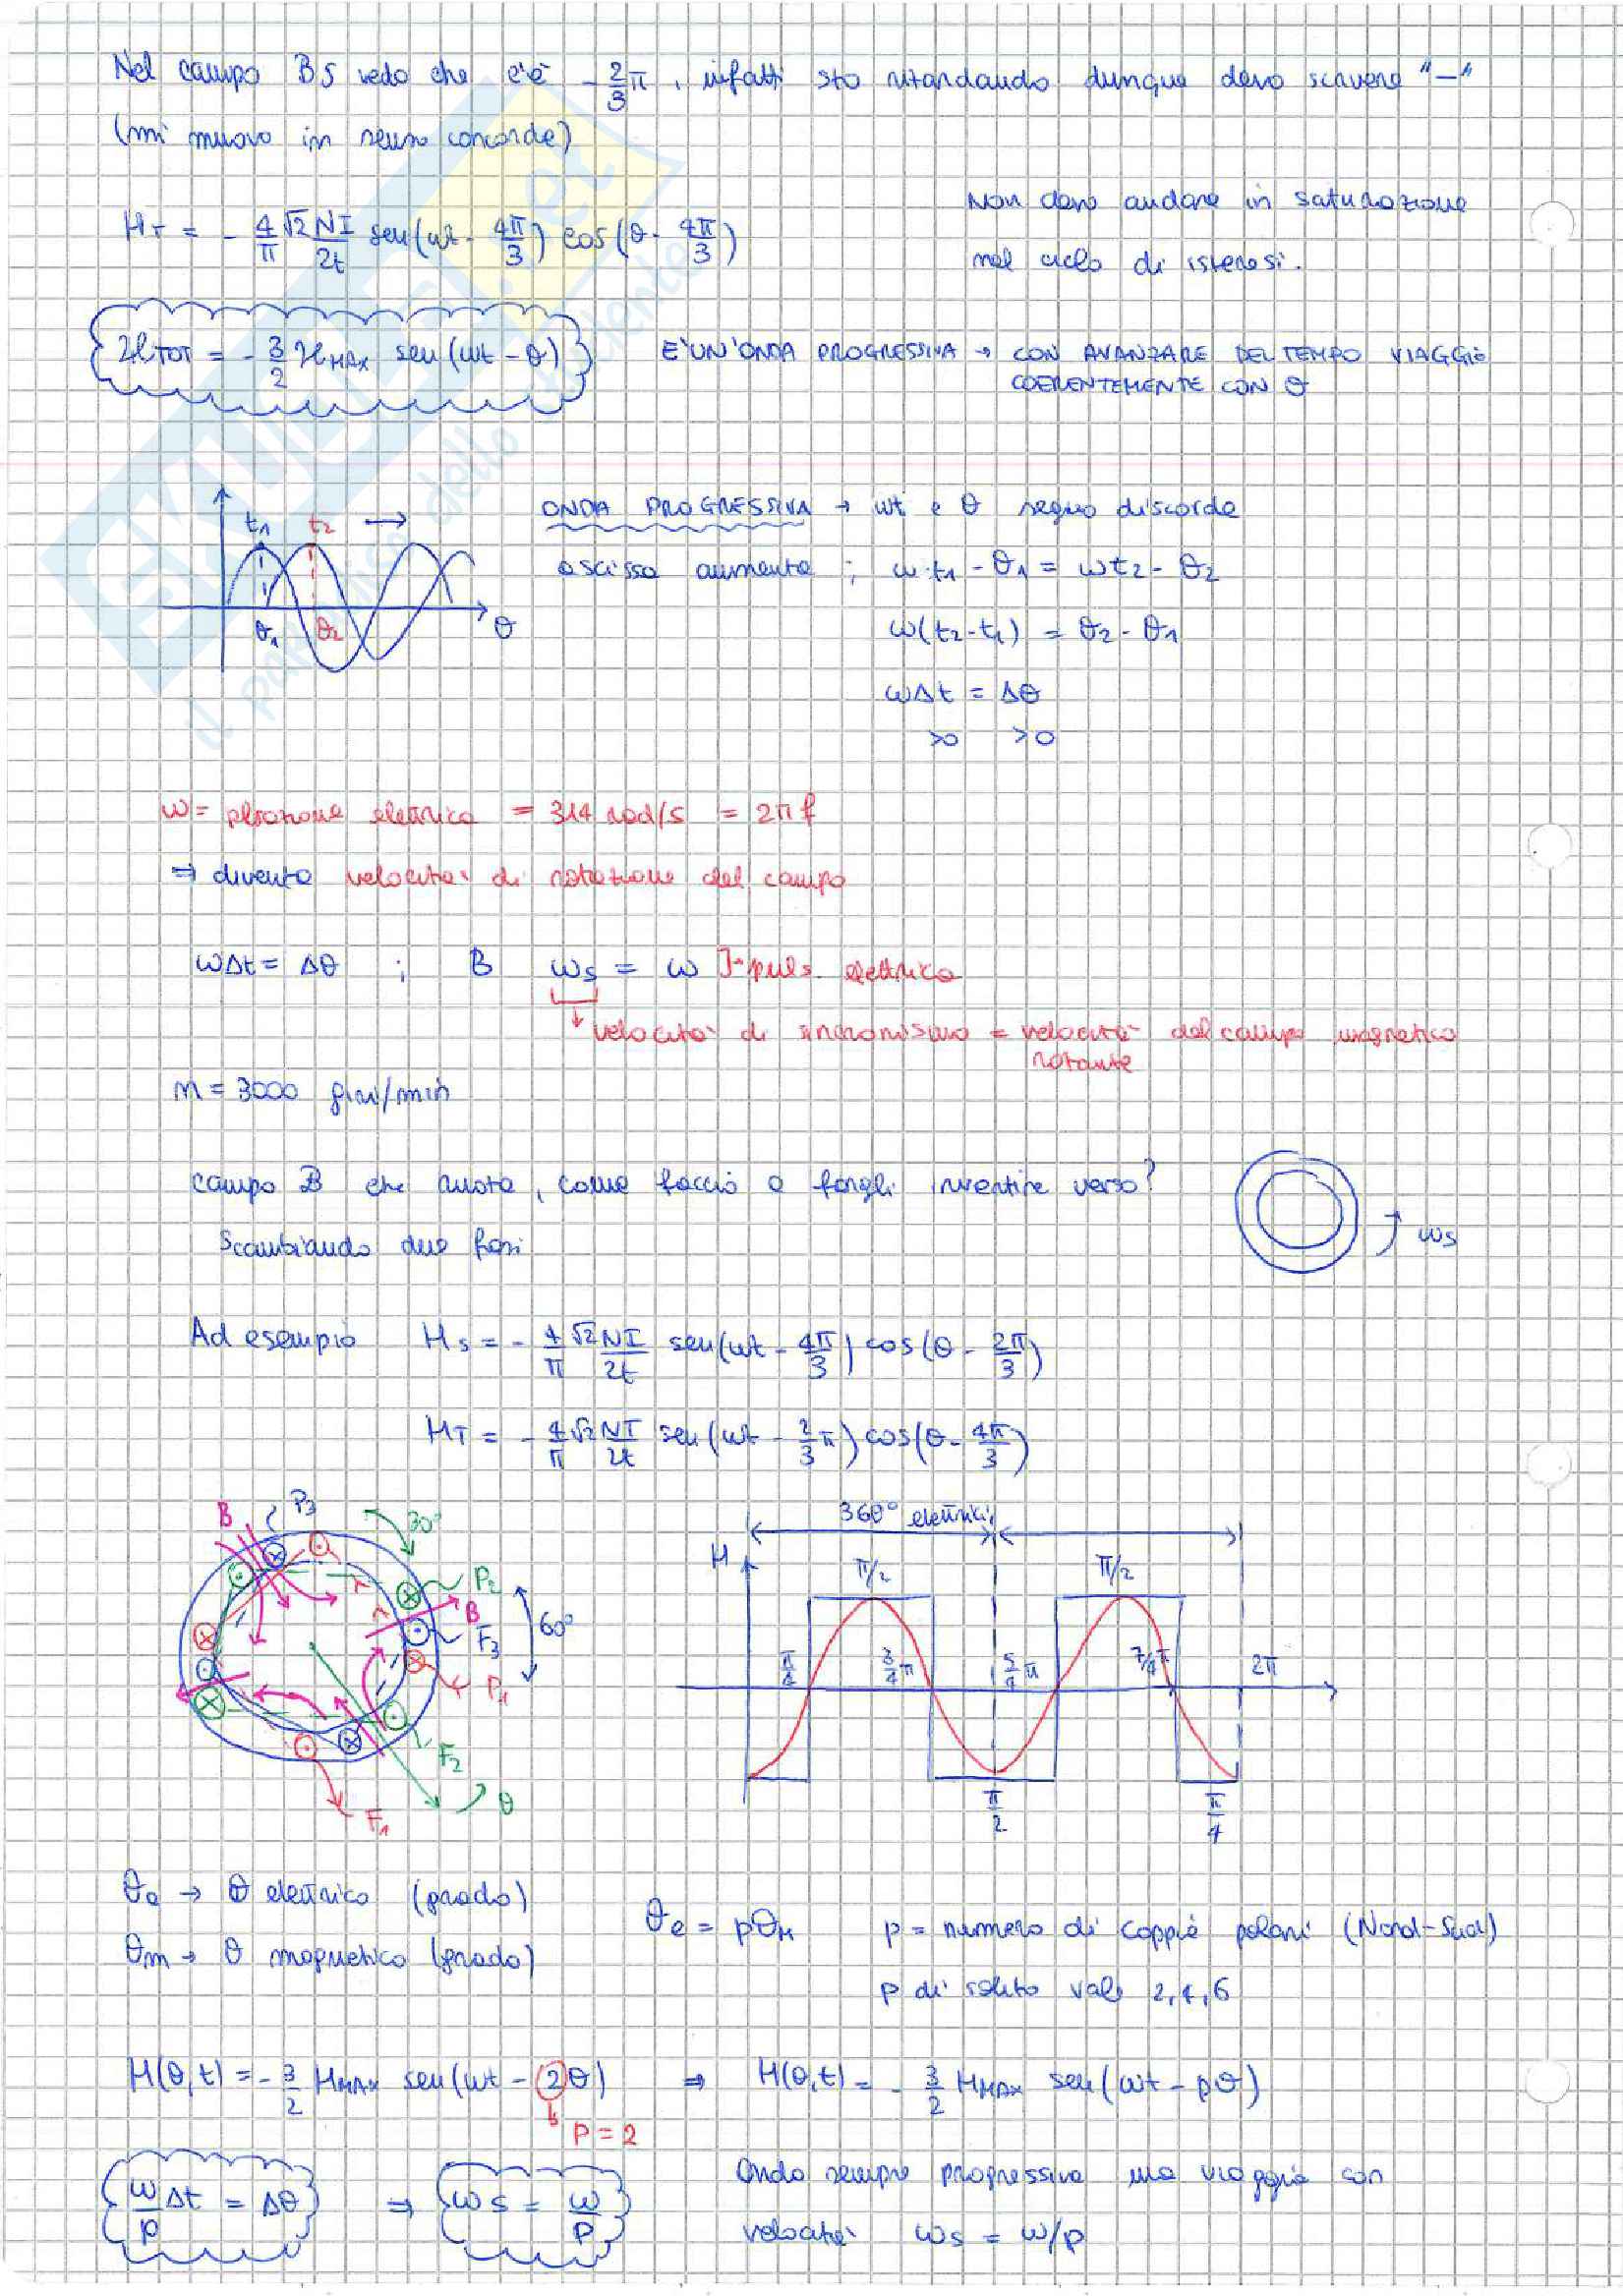 Nel campo BS vedo che c'è - 2/3 π, infatti sto ritardando dunque devo scrivere "-"
(mi muovo in senso concorde)
H_T = - 4/π √2 NI/2t sen(ωt - 4π/3) cos(θ - 4π/3)
Non devo andare in saturazione
nel ciclo di isteresi.
H_TOT = - 3/2 H_MAX sen(ωt - θ)
E' UN'ONDA PROGRESSIVA → CON AVANZARE DEL TEMPO VIAGGIO
COERENTEMENTE CON θ
t1 t2 →
θ1 θ2 θ
ONDA PROGRESSIVA → ωt e θ segno discorde
ascissa aumenta ; ωt1 - θ1 = ωt2 - θ2
ω(t2-t1) = θ2 - θ1
ωΔt = Δθ
>0 >0
ω = pulsazione elettrica = 314 rad/s = 2πf
⇒ diventa velocità di rotazione del campo
ωΔt = Δθ ; B ωs = ω }→puls. elettrica
velocità di sincronismo = velocità del campo magnetico
rotante
n = 3000 giri/min
campo B che ruota, come faccio a fargli invertire verso?
Scambiando due fasi
ωs
Ad esempio H_S = - 4/π √2 NI/2t sen(ωt - 4π/3) cos(θ - 2π/3)
H_T = - 4/π √2 NI/2t sen(ωt - 2/3 π) cos(θ - 4π/3)
B P3 30°
P2
B
F3 60°
P1
F2
θ
F1
360° elettrici
H π/2 π/2
π/4 3/4 π 5/4 π 7/4 π 2π
π/2 π/4
θe → θ elettrico (grado)
θm → θ magnetico (grado)
θe = pθM p = numero di coppie polari (Nord-Sud)
p di solito vale 2,4,6
H(θ,t) = - 3/2 H_MAX sen(ωt - 2θ) ⇒ H(θ,t) = - 3/2 H_MAX sen(ωt - pθ)
p = 2
ω/p Δt = Δθ ⇒ ωs = ω/p
Onda sempre progressiva ma viaggia con
velocità ωs = ω/p